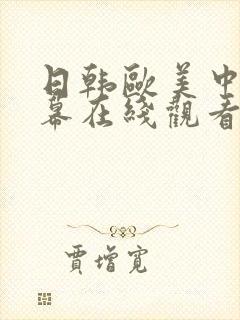 日韩欧美中
幕在线观看
贾增宽